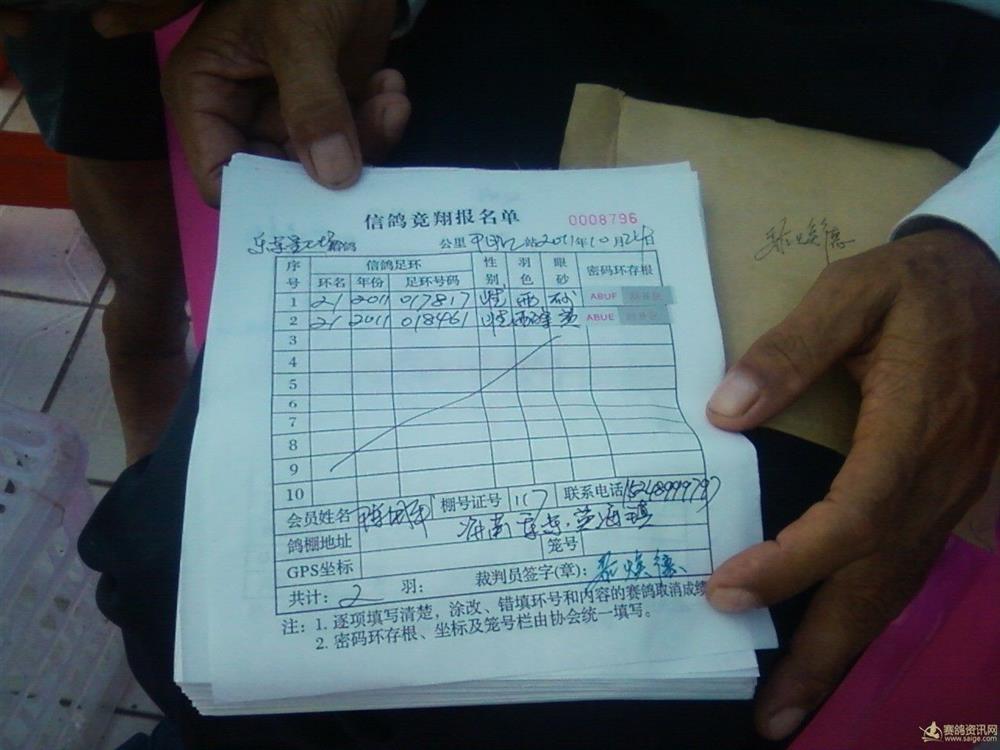 信鸽竞翔报名单 0008796
公里 站2011年10月24日
序号 信鸽足环 性别 羽色 眼砂 密码环存根
环名 年份 足环号码
1 21 2011 017817 雄 雨 砂 ABUF
2 21 2011 018461 雄 黄 ABUE
3
4
5
6
7
8
9
10
会员姓名 棚号证号 117 联系电话
鸽棚地址 海南 乐东
笼号
GPS坐标
共计: 2 羽: 裁判员签字(章):
注: 1. 逐项填写清楚，涂改、错填环号和内容的赛鸽取消成绩
2. 密码环存根、坐标及笼号栏由协会统一填写。
赛鸽资讯网
www.saige.com